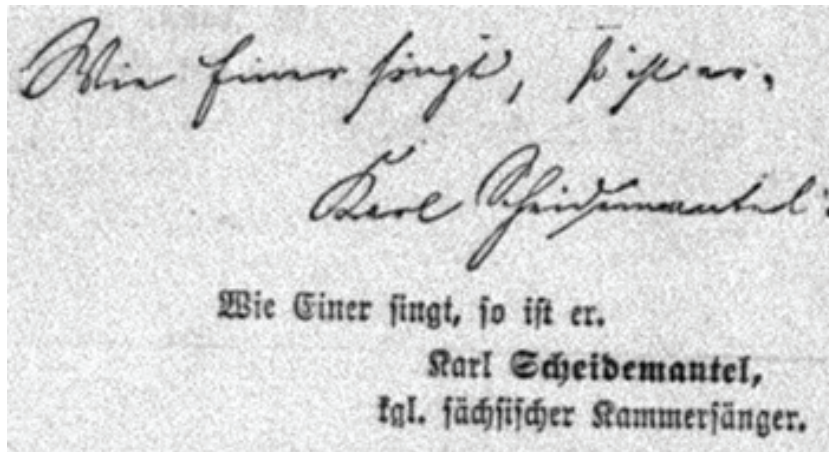 Wie Einer singt, so ist er.
Karl Scheidemantel.
Wie Einer singt, so ist er.
Karl Scheidemantel,
kgl. sächsischer Kammersänger.